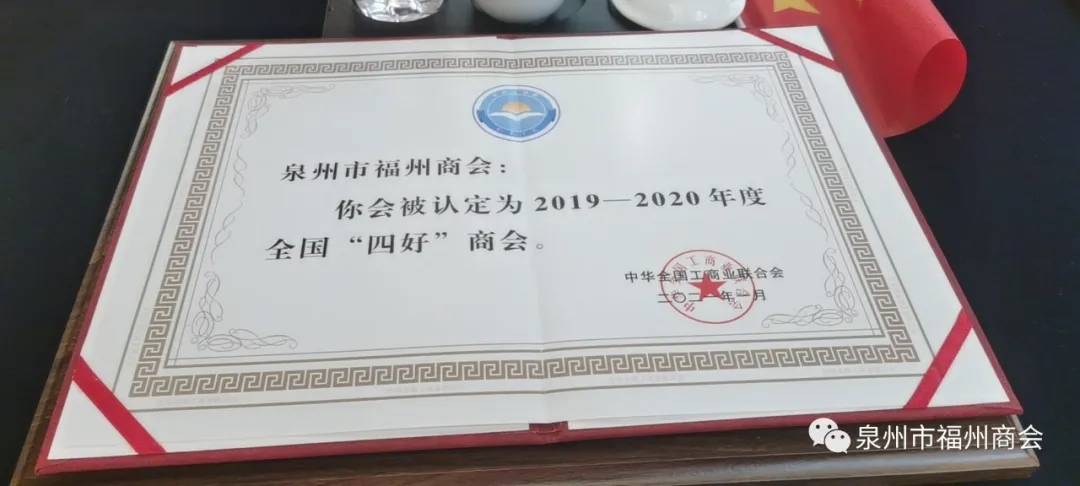 泉州市福州商会：
你会被认定为2019—2020年度
全国“四好”商会。
中华全国工商业联合会
二〇二一年一月
中华全国工商业联合会
泉州市福州商会